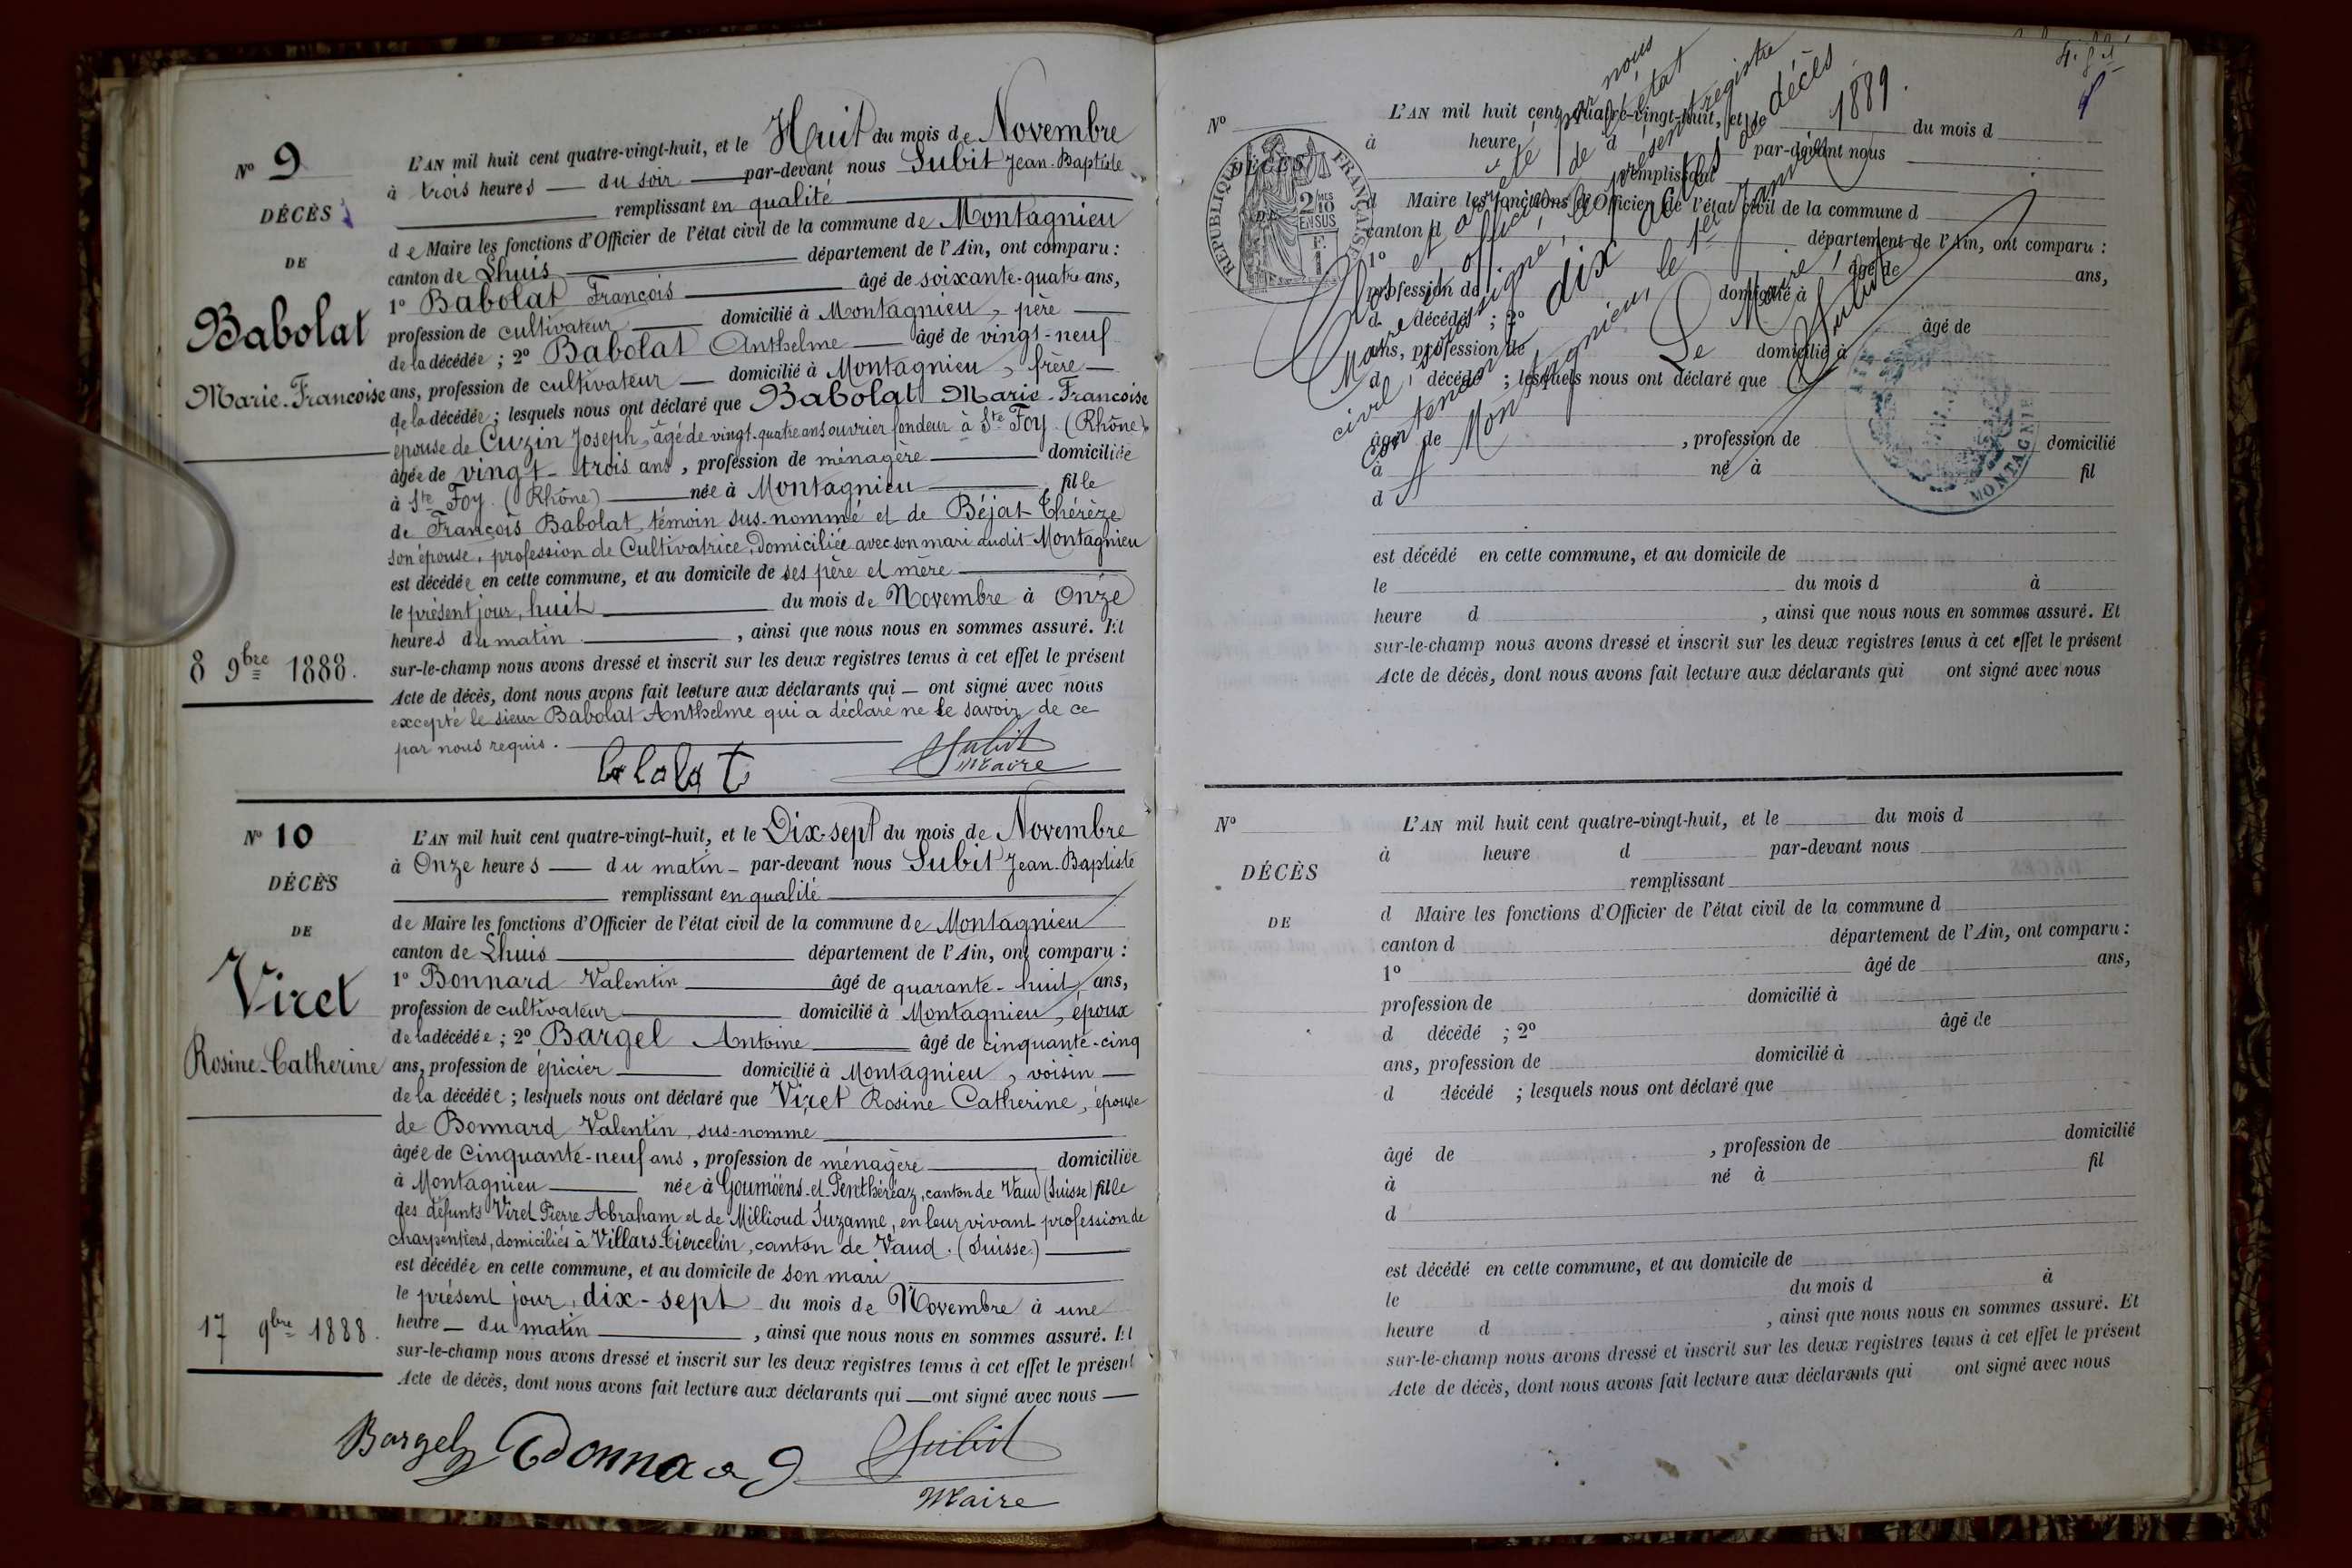 N° 9
DÉCÈS
DE
Babolat
Marie-Francoise
8 9bre 1888.
L'AN mil huit cent quatre-vingt-huit, et le Huit du mois de Novembre
à trois heures du soir par-devant nous Subit Jean-Baptiste
remplissant en qualité
de Maire les fonctions d'Officier de l'état civil de la commune de Montagnieu
canton de Lhuis département de l'Ain, ont comparu :
1° Babolat François âgé de soixante-quatre ans,
profession de cultivateur domicilié à Montagnieu, père
de la décédée ; 2° Babolat Anthelme âgé de vingt-neuf
ans, profession de cultivateur domicilié à Montagnieu, frère
de la décédée ; lesquels nous ont déclaré que Babolat Marie-Francoise
épouse de Cuzin Joseph, âgé de vingt-quatre ans ouvrier fondeur à Ste Foy (Rhône),
âgée de vingt-trois ans, profession de ménagère domiciliée
à Ste Foy (Rhône) née à Montagnieu fille
de François Babolat, témoin sus-nommé et de Béjat Thérèze
son épouse, profession de Cultivatrice, domiciliée avec son mari audit Montagnieu
est décédée en cette commune, et au domicile de ses père et mère
le présent jour, huit du mois de Novembre à Onze
heures du matin , ainsi que nous nous en sommes assuré. Et
sur-le-champ nous avons dressé et inscrit sur les deux registres tenus à cet effet le présent
Acte de décès, dont nous avons fait lecture aux déclarants qui — ont signé avec nous
excepté le sieur Babolat Anthelme qui a déclaré ne le savoir de ce
par nous requis.
Subit
Maire
N° 10
DÉCÈS
DE
Viret
Rosine-Catherine
17 9bre 1888.
L'AN mil huit cent quatre-vingt-huit, et le Dix-sept du mois de Novembre
à Onze heures — du matin — par-devant nous Subit Jean-Baptiste
remplissant en qualité
de Maire les fonctions d'Officier de l'état civil de la commune de Montagnieu
canton de Lhuis département de l'Ain, ont comparu :
1° Bonnard Valentin âgé de quarante-huit ans,
profession de cultivateur domicilié à Montagnieu, époux
de la décédée ; 2° Bargel Antoine âgé de cinquante-cinq
ans, profession de épicier domicilié à Montagnieu, voisin
de la décédée ; lesquels nous ont déclaré que Viret Rosine Catherine, épouse
de Bonnard Valentin, sus-nommé
âgée de Cinquante-neuf ans, profession de ménagère domiciliée
à Montagnieu née à Goumöens-et-Penthéréaz, canton de Vaud (Suisse) fille
des défunts Viret Pierre Abraham et de Millioud Suzanne, en leur vivant profession de
charpentiers, domiciliés à Villars-Tiercelin, canton de Vaud. (Suisse)
est décédée en cette commune, et au domicile de son mari
le présent jour, dix-sept du mois de Novembre à une
heure — du matin , ainsi que nous nous en sommes assuré. Et
sur-le-champ nous avons dressé et inscrit sur les deux registres tenus à cet effet le présent
Acte de décès, dont nous avons fait lecture aux déclarants qui — ont signé avec nous
Bargel Bonnard Subit
Maire
N°
DÉCÈS
RÉPUBLIQUE FRANÇAISE
L'AN mil huit cent quatre-vingt-huit, et le du mois d
à heure d par-devant nous
remplissant
d Maire les fonctions d'Officier de l'état civil de la commune d
canton d département de l'Ain, ont comparu :
1° âgé de ans,
profession de domicilié à
d décédé ; 2° âgé de
ans, profession de domicilié à
d décédé ; lesquels nous ont déclaré que
âgé de , profession de domicilié
à né à fil
d
est décédé en cette commune, et au domicile de
le du mois d à
heure d , ainsi que nous nous en sommes assuré. Et
sur-le-champ nous avons dressé et inscrit sur les deux registres tenus à cet effet le présent
Acte de décès, dont nous avons fait lecture aux déclarants qui ont signé avec nous
Clos et arrêté par nous
Maire et officier de l'état
civil soussigné, le présent registre
contenant dix actes de décès
A Montagnieu, le 1er Janvier 1889.
Le Maire,
Subit
MONTAGNIE
N°
DÉCÈS
DE
L'AN mil huit cent quatre-vingt-huit, et le du mois d
à heure d par-devant nous
remplissant
d Maire les fonctions d'Officier de l'état civil de la commune d
canton d département de l'Ain, ont comparu :
1° âgé de ans,
profession de domicilié à
d décédé ; 2° âgé de
ans, profession de domicilié à
d décédé ; lesquels nous ont déclaré que
âgé de , profession de domicilié
à né à fil
d
est décédé en cette commune, et au domicile de
le du mois d à
heure d , ainsi que nous nous en sommes assuré. Et
sur-le-champ nous avons dressé et inscrit sur les deux registres tenus à cet effet le présent
Acte de décès, dont nous avons fait lecture aux déclarants qui ont signé avec nous